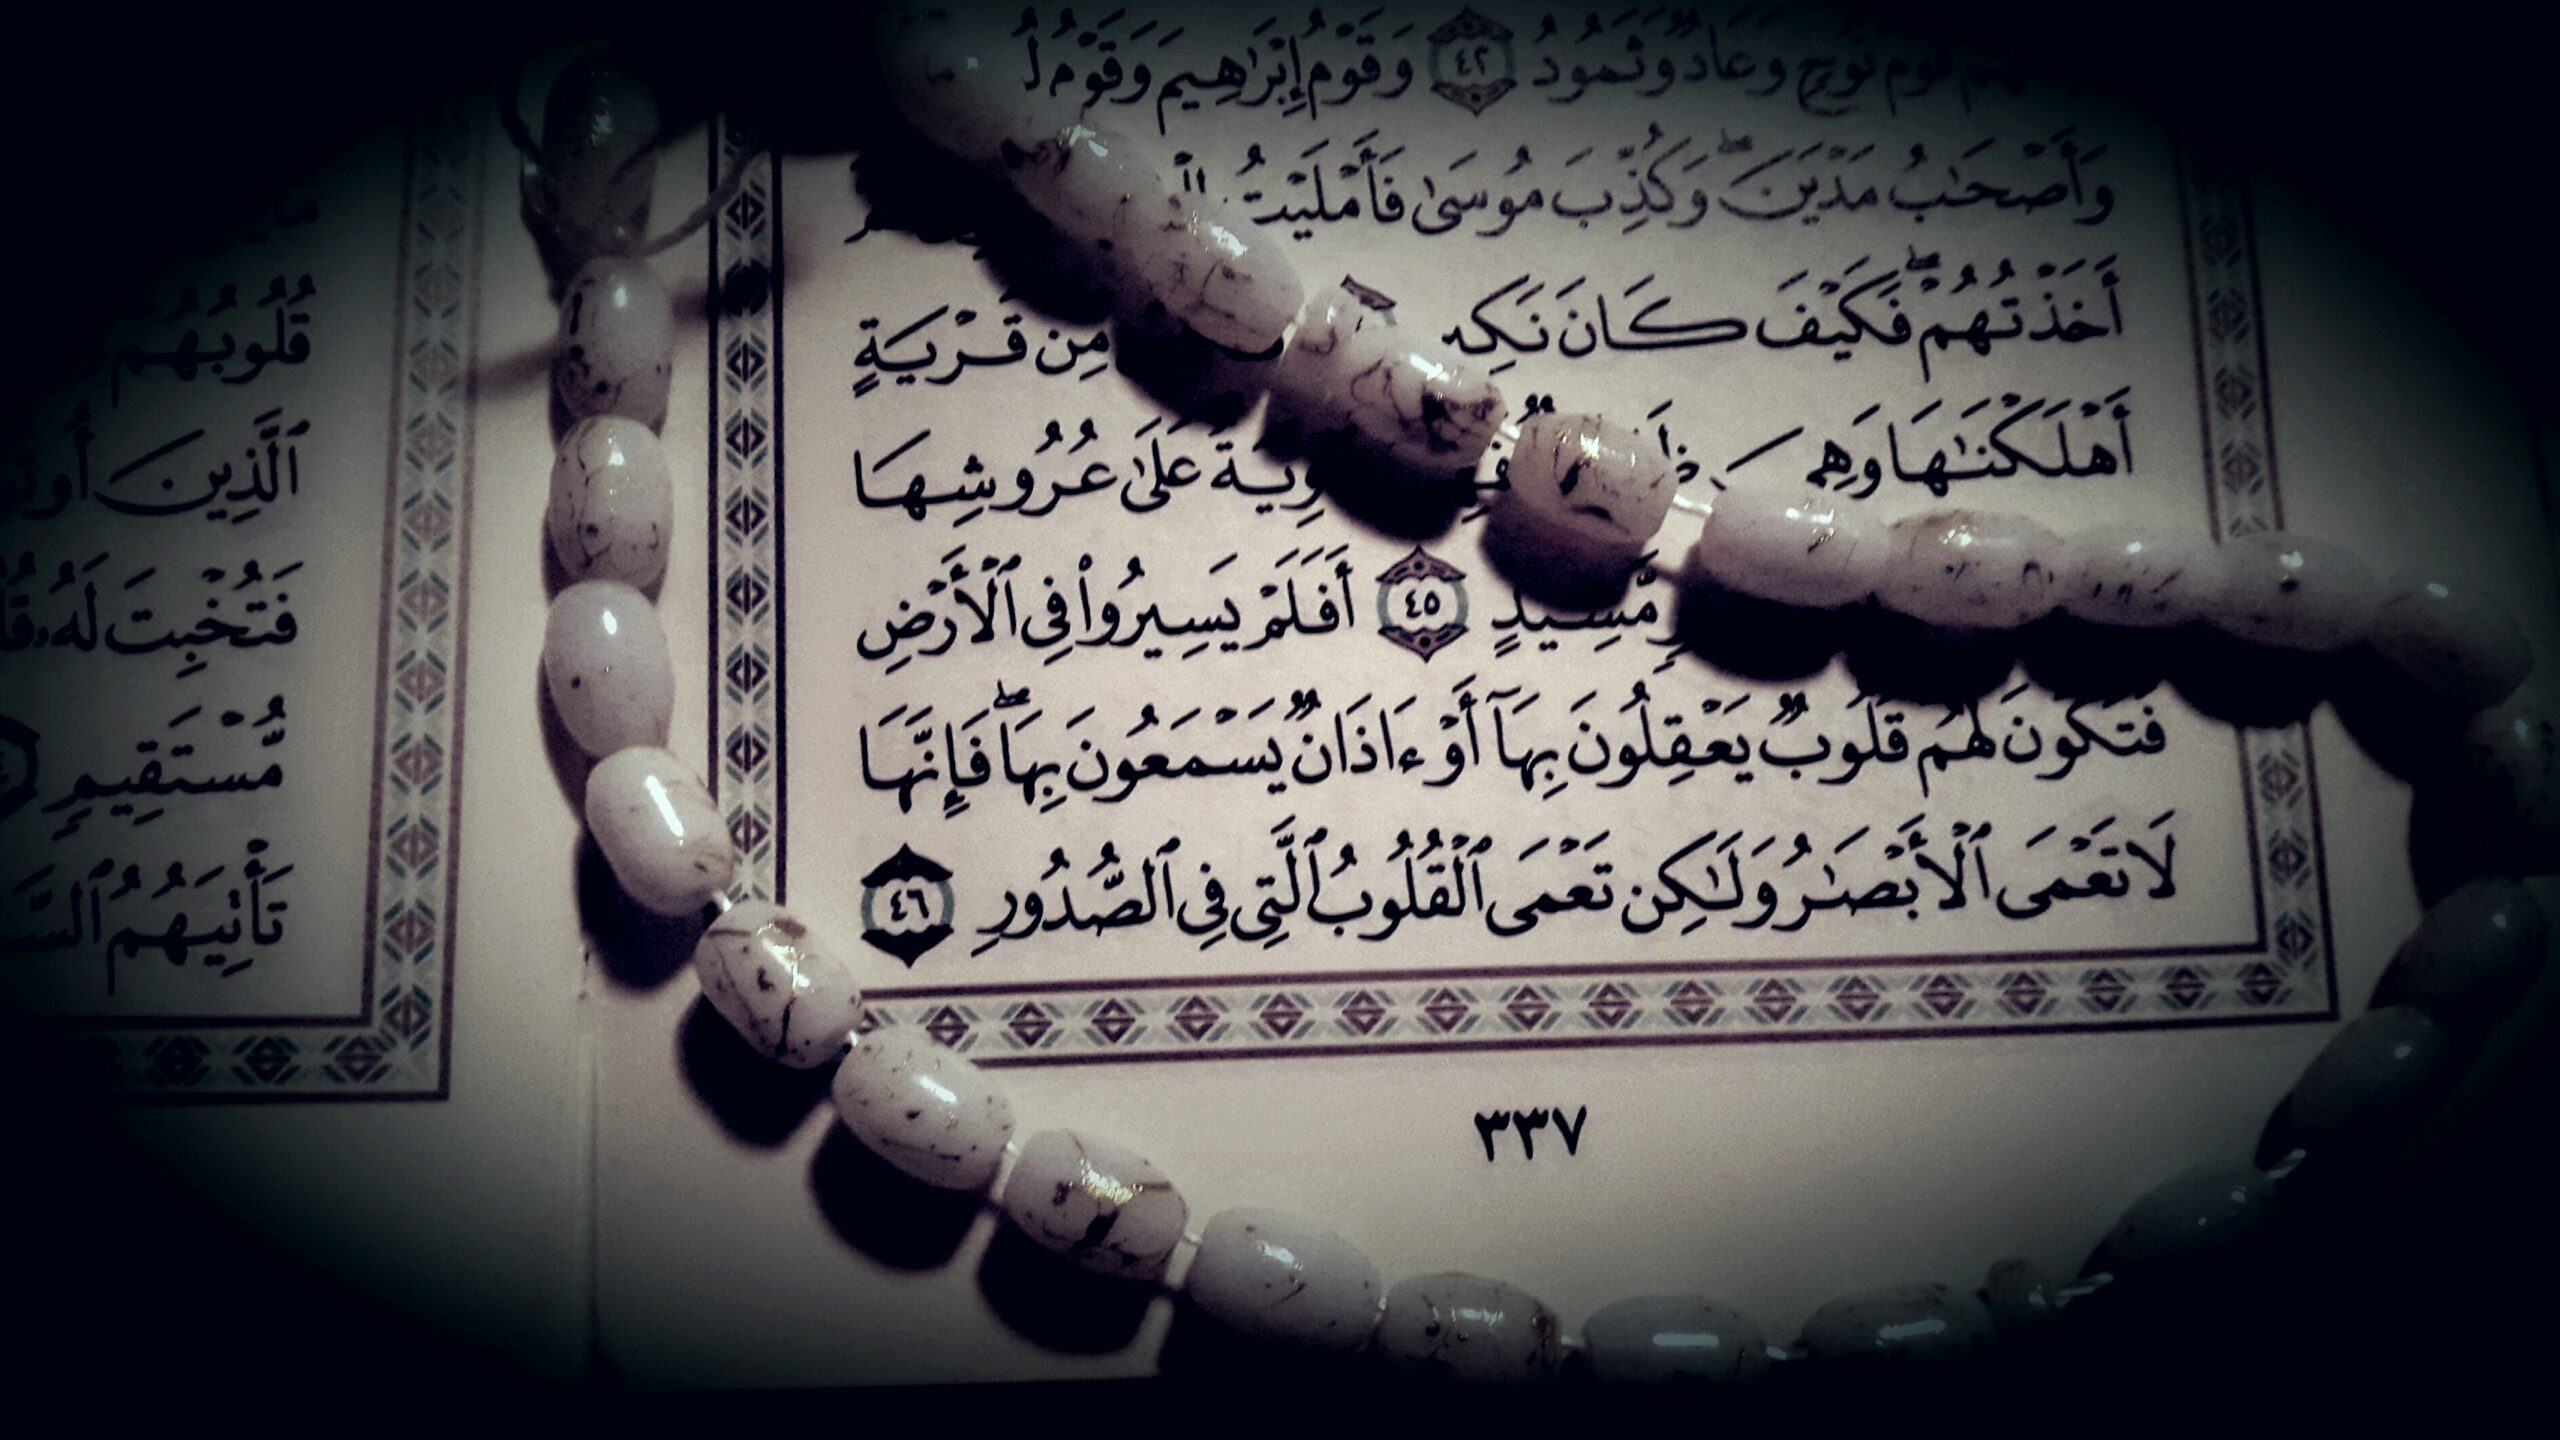 قَوْمُ نُوحٍ وَعَادٌ وَثَمُودُ ٤٢ وَقَوْمُ إِبْرَٰهِيمَ وَقَوْمُ
وَأَصْحَٰبُ مَدْيَنَ ۖ وَكُذِّبَ مُوسَىٰ فَأَمْلَيْتُ
أَخَذْتُهُمْ ۖ فَكَيْفَ كَانَ مِن قَرْيَةٍ
أَهْلَكْنَٰهَا وَهِىَ عَلَىٰ عُرُوشِهَا
مَّشِيدٍ ٤٥ أَفَلَمْ يَسِيرُوا۟ فِى ٱلْأَرْضِ
فَتَكُونَ لَهُمْ قُلُوبٌ يَعْقِلُونَ بِهَآ أَوْ ءَاذَانٌ يَسْمَعُونَ بِهَا ۖ فَإِنَّهَا
لَا تَعْمَى ٱلْأَبْصَٰرُ وَلَٰكِن تَعْمَى ٱلْقُلُوبُ ٱلَّتِى فِى ٱلصُّدُورِ ٤٦
٣٣٧
قُلُوبُهُمْ
ٱلَّذِينَ
فَتُخْبِتَ لَهُۥ
مُّسْتَقِيمٍ
تَأْتِيَهُمُ